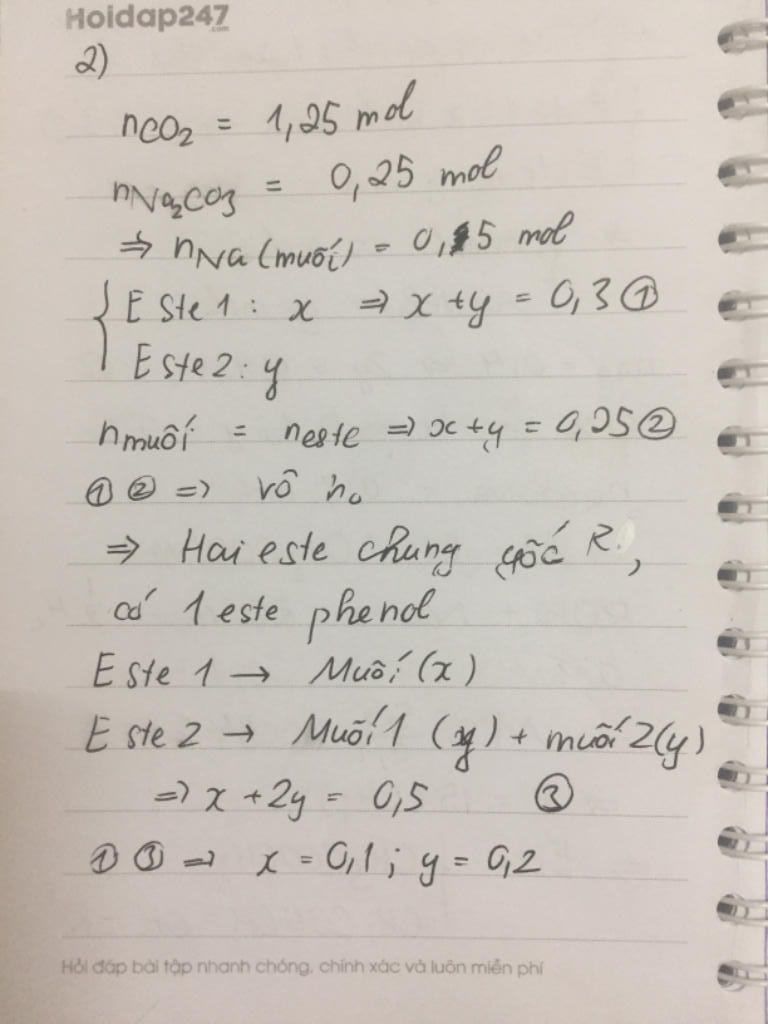 Hoidap247
.com
2)
nCO2 = 1,25 mol
nNa2CO3 = 0,25 mol
=> nNa (muối) = 0,5 mol
{ Este 1 : x => x + y = 0,3 ①
Este 2 : y
nmuối = neste => x + y = 0,25 ②
① ② => vô no
=> Hai este chung gốc R,
có 1 este phenol
Este 1 → Muối (x)
Este 2 → Muối 1 (y) + muối 2 (y)
=> x + 2y = 0,5 ③
① ③ => x = 0,1 ; y = 0,2
Hỏi đáp bài tập nhanh chóng, chính xác và luôn miễn phí